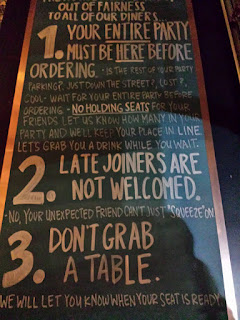 OUT OF FAIRNESS
TO ALL OF OUR DINERS...
1. YOUR ENTIRE PARTY
MUST BE HERE BEFORE
ORDERING. - IS THE REST OF YOUR PARTY
PARKING?, JUST DOWN THE STREET?, LOST?,
COOL - WAIT FOR YOUR ENTIRE PARTY BEFORE
ORDERING - NO HOLDING SEATS FOR YOUR
FRIENDS. LET US KNOW HOW MANY IN YOUR
PARTY AND WE'LL KEEP YOUR PLACE IN LINE
LETS GRAB YOU A DRINK WHILE YOU WAIT.
2. LATE JOINERS ARE
NOT WELCOMED.
-NO, YOUR UNEXPECTED FRIEND CAN'T JUST "SQUEEZE" ON
3. DON'T GRAB
A TABLE.
WE WILL LET YOU KNOW WHEN YOUR SEAT IS READY